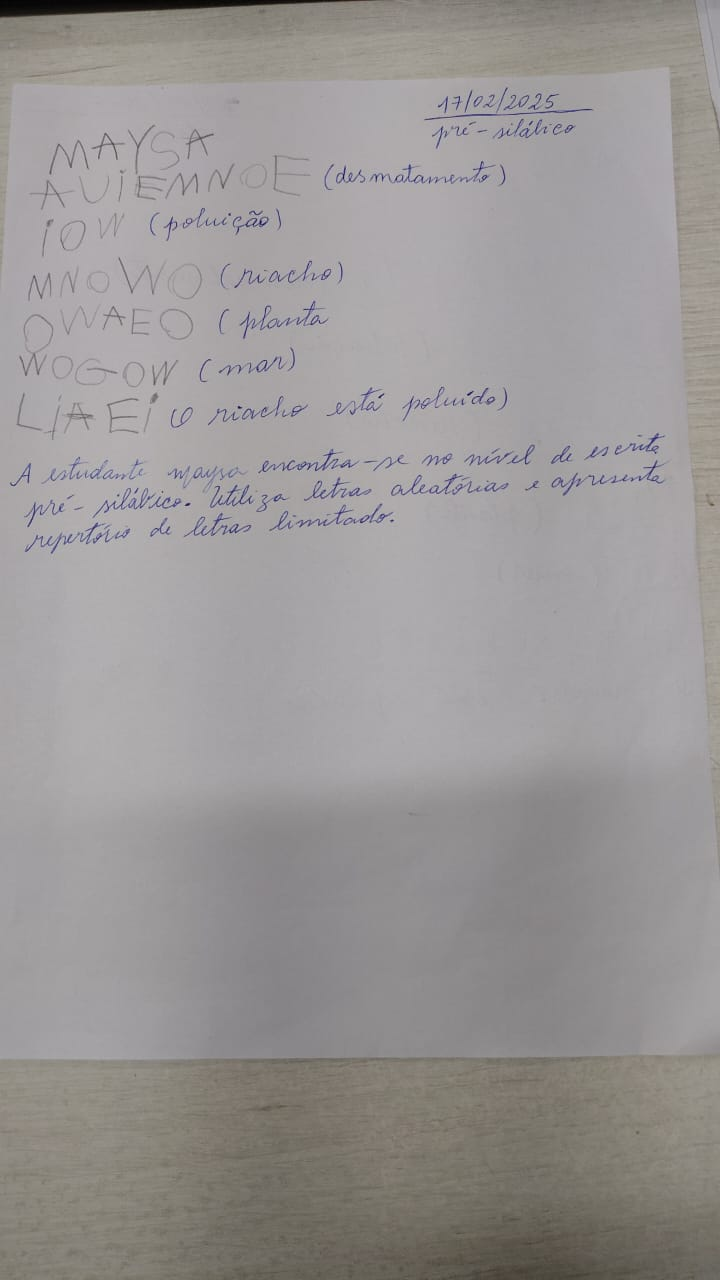 17/02/2025
pré-silábico
MAYSA
AUIEMNOE (desmatamento)
iOW (poluição)
MNOWO (riacho)
OWAEO (planta
WOGOW (mar)
LiAEi (O riacho está poluído)
A estudante Maysa encontra-se no nível de escrita
pré-silábico. Utiliza letras aleatórias e apresenta
repertório de letras limitado.